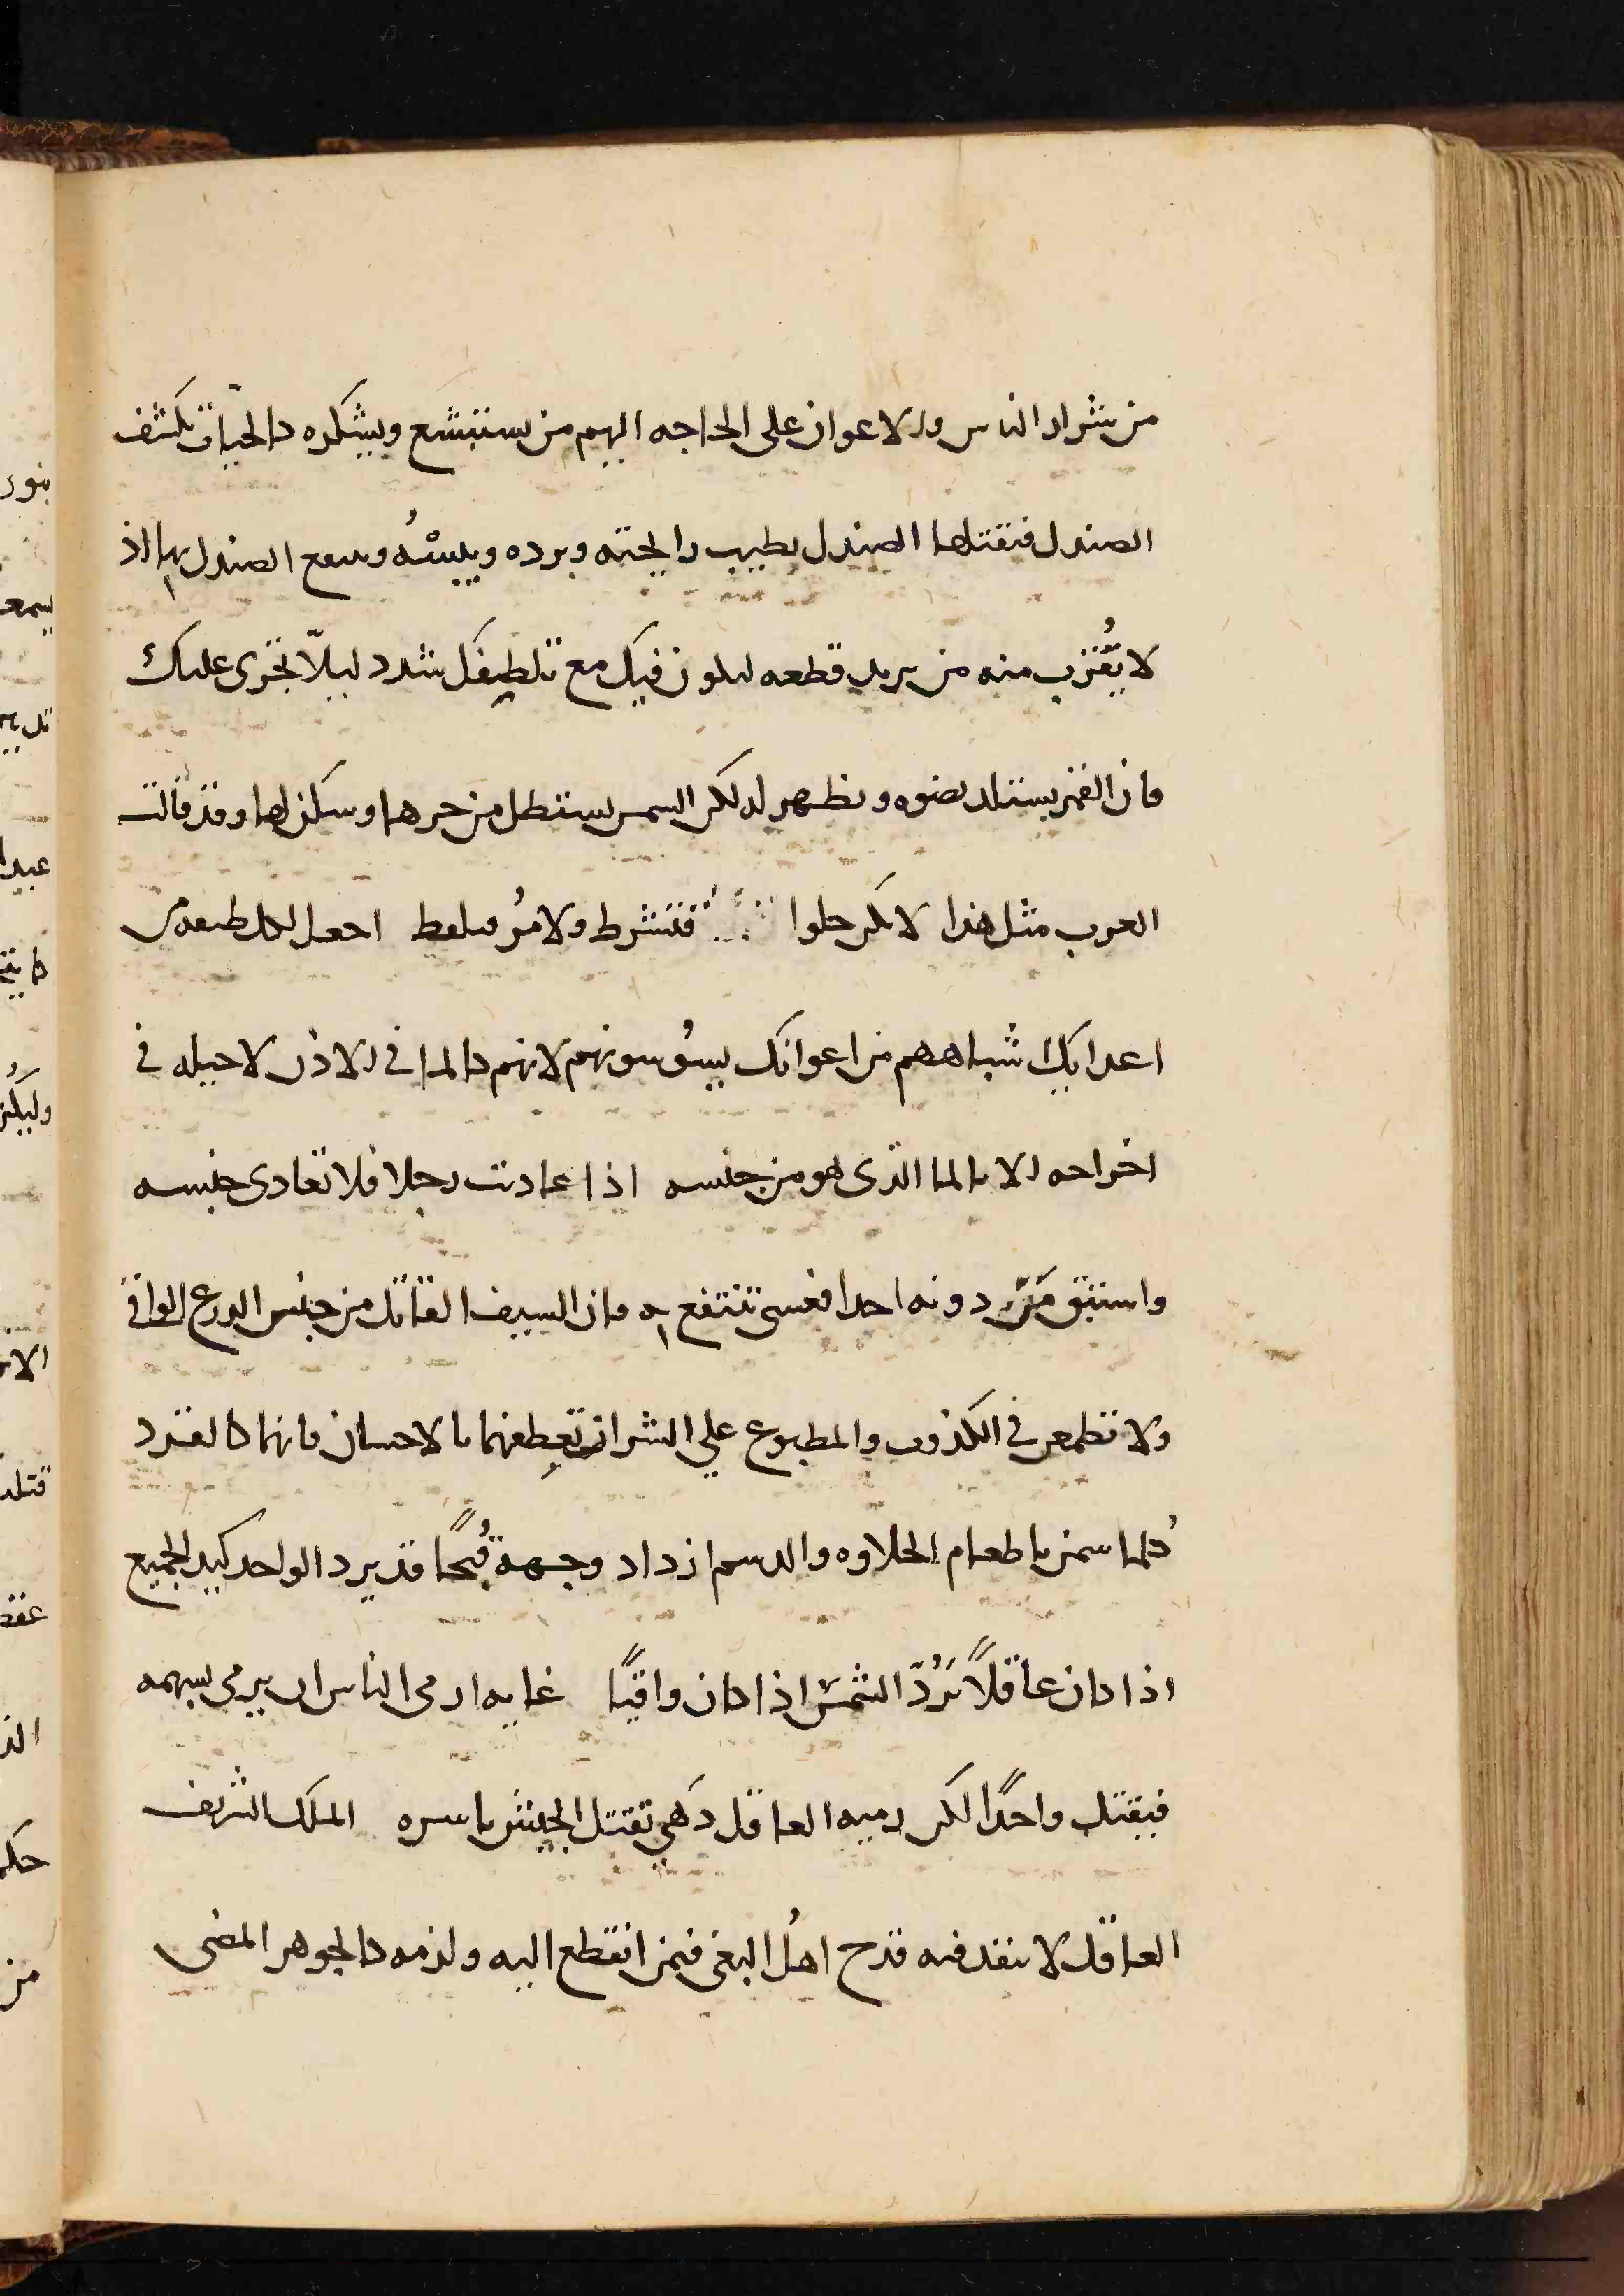 من شرار الناس والاعوان على الحاجه اليهم من يستبشع ويستكره كالحيات تكتنف
الصندل فتقتلها الصندل بطيب رايحته وبرده ويبسُه وينتفع الصندل بها اذ
لا يَقُرب منه من يريد قطعه ليكون فيك مع تلطيفك تشدد ليلّا يجترى عليك
فان القمر يستلذ بضوه ويظهر له لكن الشمس يستظل من حرها وسكن لها وقد قالت
العرب مثل هذا لا تكن حلوا فتشرط ولا مرُ فتلفظ اجعل لكل طبقه من
اعدايك اشُباههم من اعوانك يسُوسونهم لانهم كالما فى الاذن لا حيله فى
اخراجه الا بالما الذى هو من جنسه اذا عاديت رجلا فلا تعادى جنسه
واستبق مَن دونه احدا فعسى تنتفع به فان السيف القاتل من جنس الدرع الواقى
ولا تطمعن فى الكذوب والمطبوع على الشر ان تعِطفهما بالاحسان فانهما كالقرد
كُلما سمن باطعام الحلاوه والدسم ازداد وجهه قُبحًا قد يرد الواحد كيد الجميع
اذا كان عاقلاً تَرُدّ الشمس اذا كان واقيًا غايه ارمى الناس ان يرمى بسهمه
فيقتل واحدًا لكن رميه العاقل دَهى تقتل الجيش باسره الملك الشريف
العاقل لا ينفد فيه قدح اهلُ البغى فيمن انقطع اليه ولزمه كالجوهر المضى
بنور
يسمع
عبيد
وليكن
قتله
من